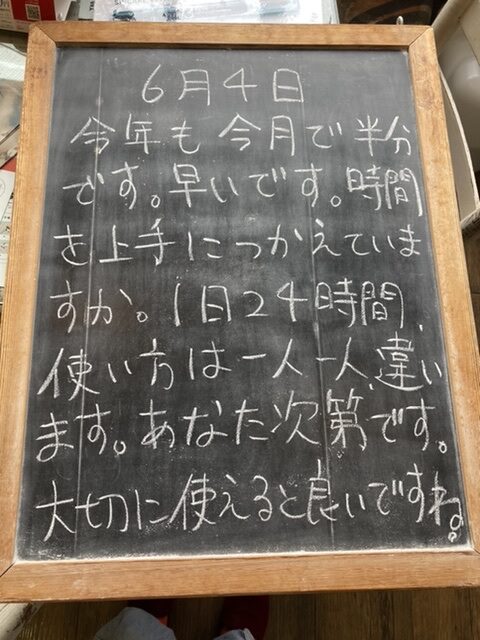 6月4日
今年も今月で半分
です。早いです。時間
を上手につかえていま
すか。1日24時間、
使い方は一人一人、違い
ます。あなた次第です。
大切に使えると良いですね。